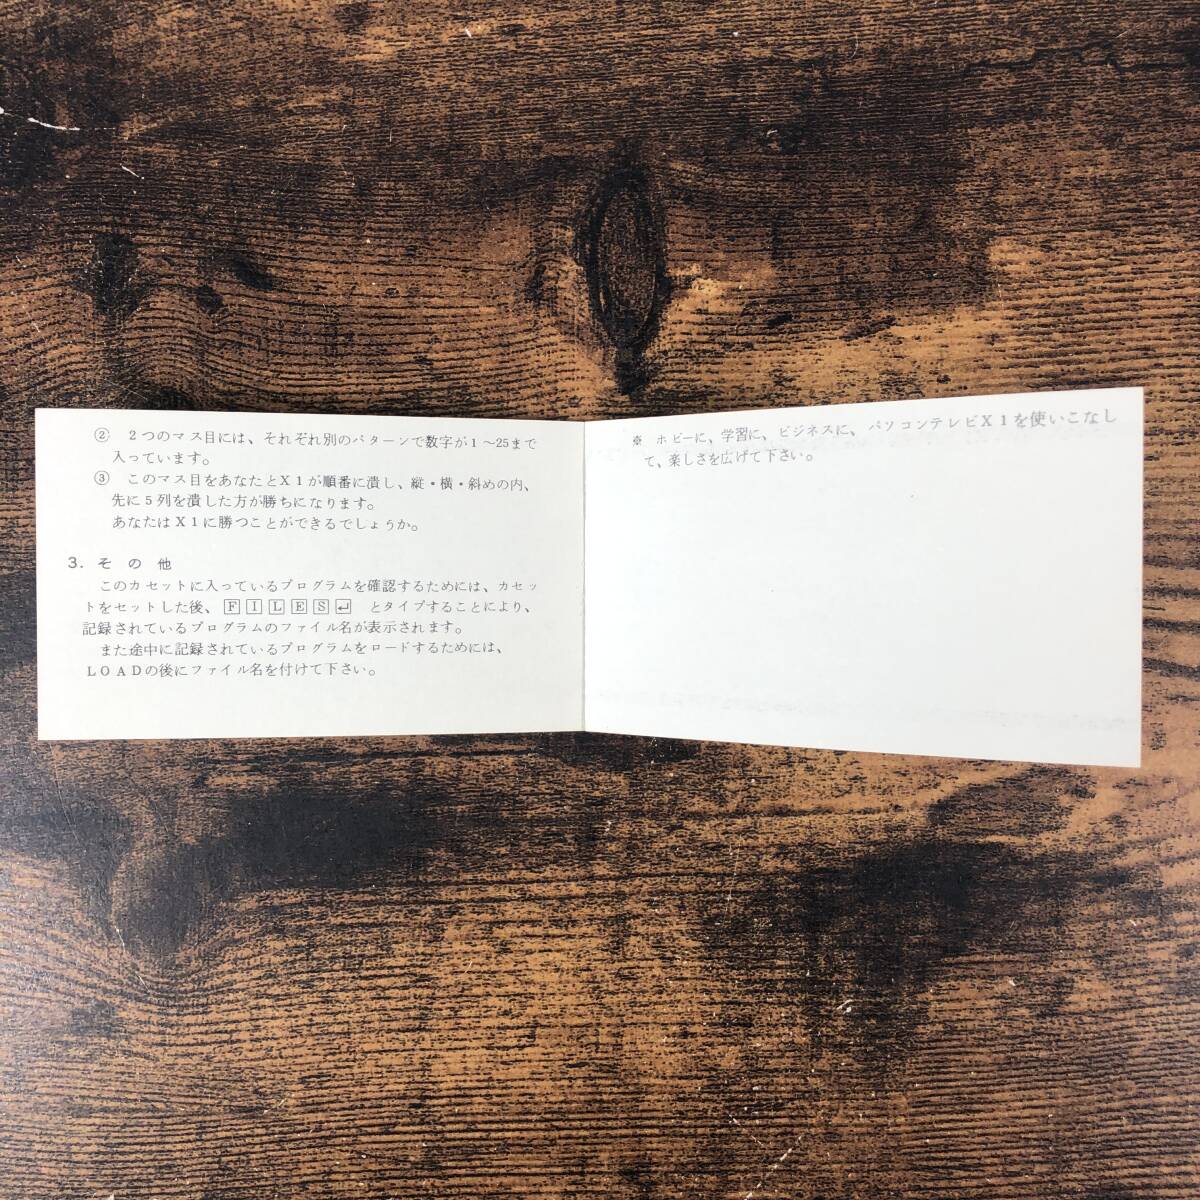 ② 2つのマス目には、それぞれ別のパターンで数字が1～25まで
入っています。
③ このマス目をあなたとX1が順番に潰し、縦・横・斜めの内、
先に5列を潰した方が勝ちになります。
あなたはX1に勝つことができるでしょうか。
3. その他
このカセットに入っているプログラムを確認するためには、カセッ
トをセットした後、FILES↵ とタイプすることにより、
記録されているプログラムのファイル名が表示されます。
また途中に記録されているプログラムをロードするためには、
LOADの後にファイル名を付けて下さい。
※ ホビーに、学習に、ビジネスに、パソコンテレビX1を使いこなし
て、楽しさを広げて下さい。